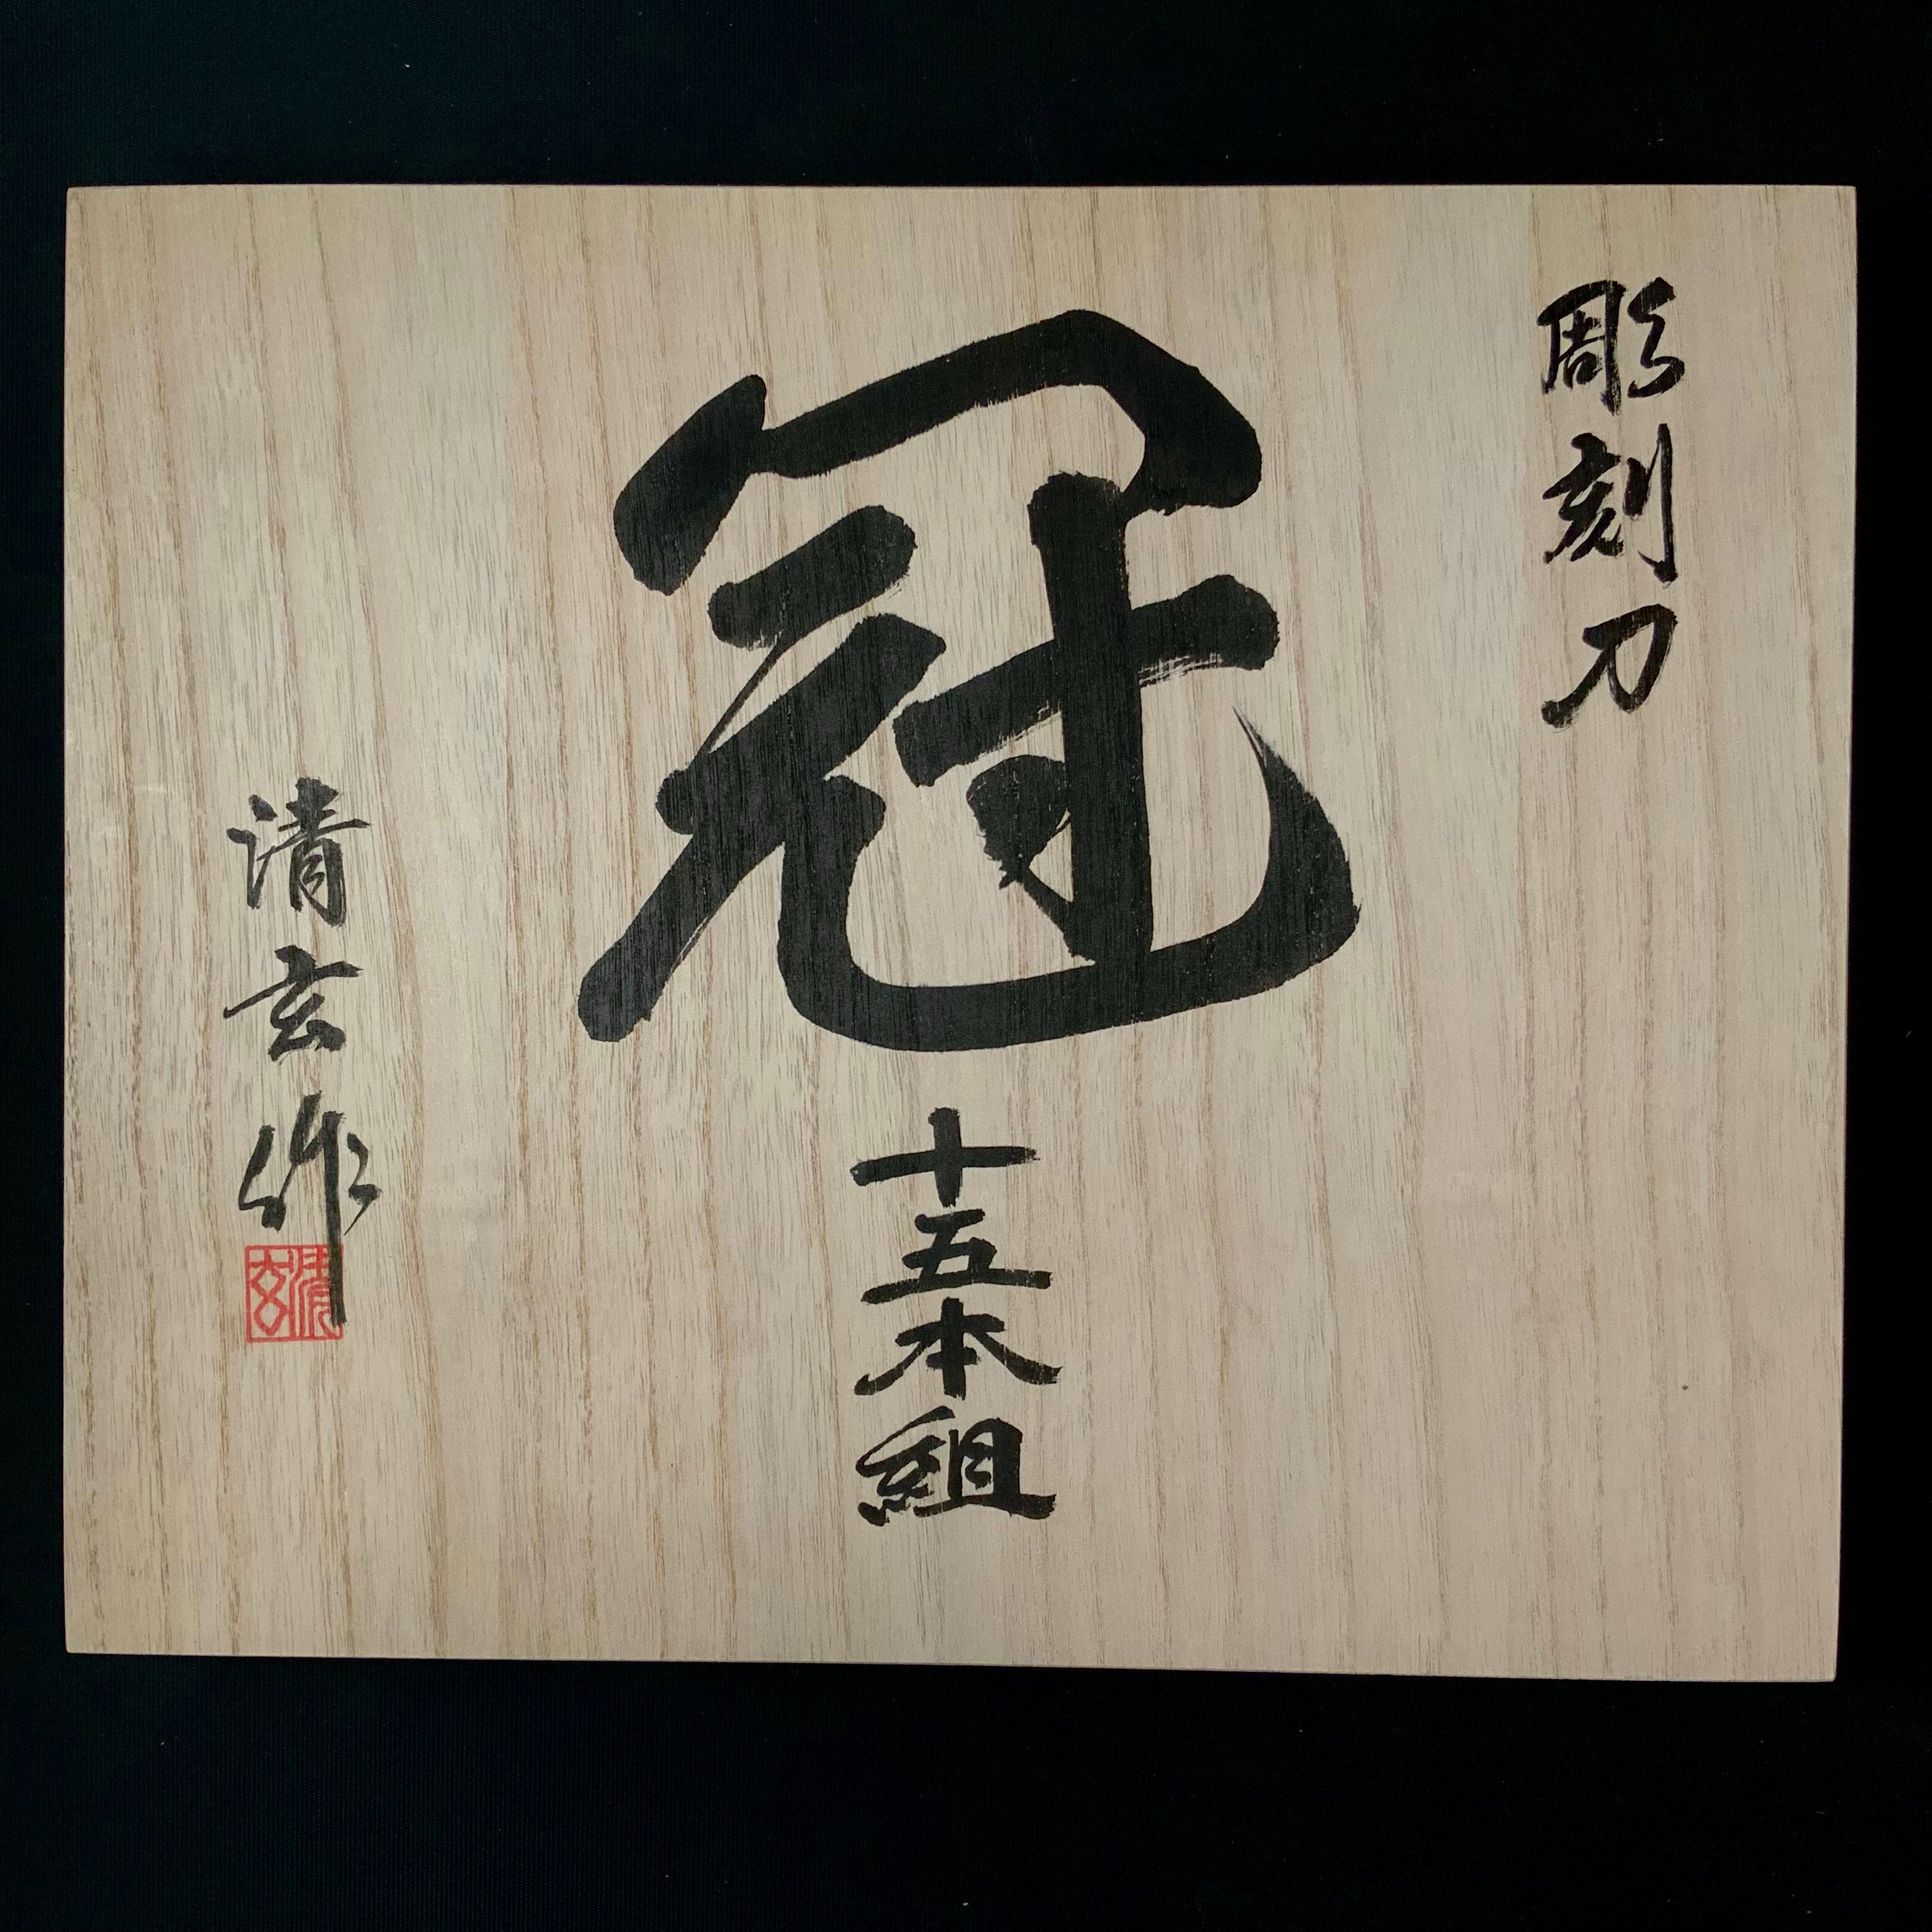 彫刻刀
冠
十五本組
清玄作
清玄